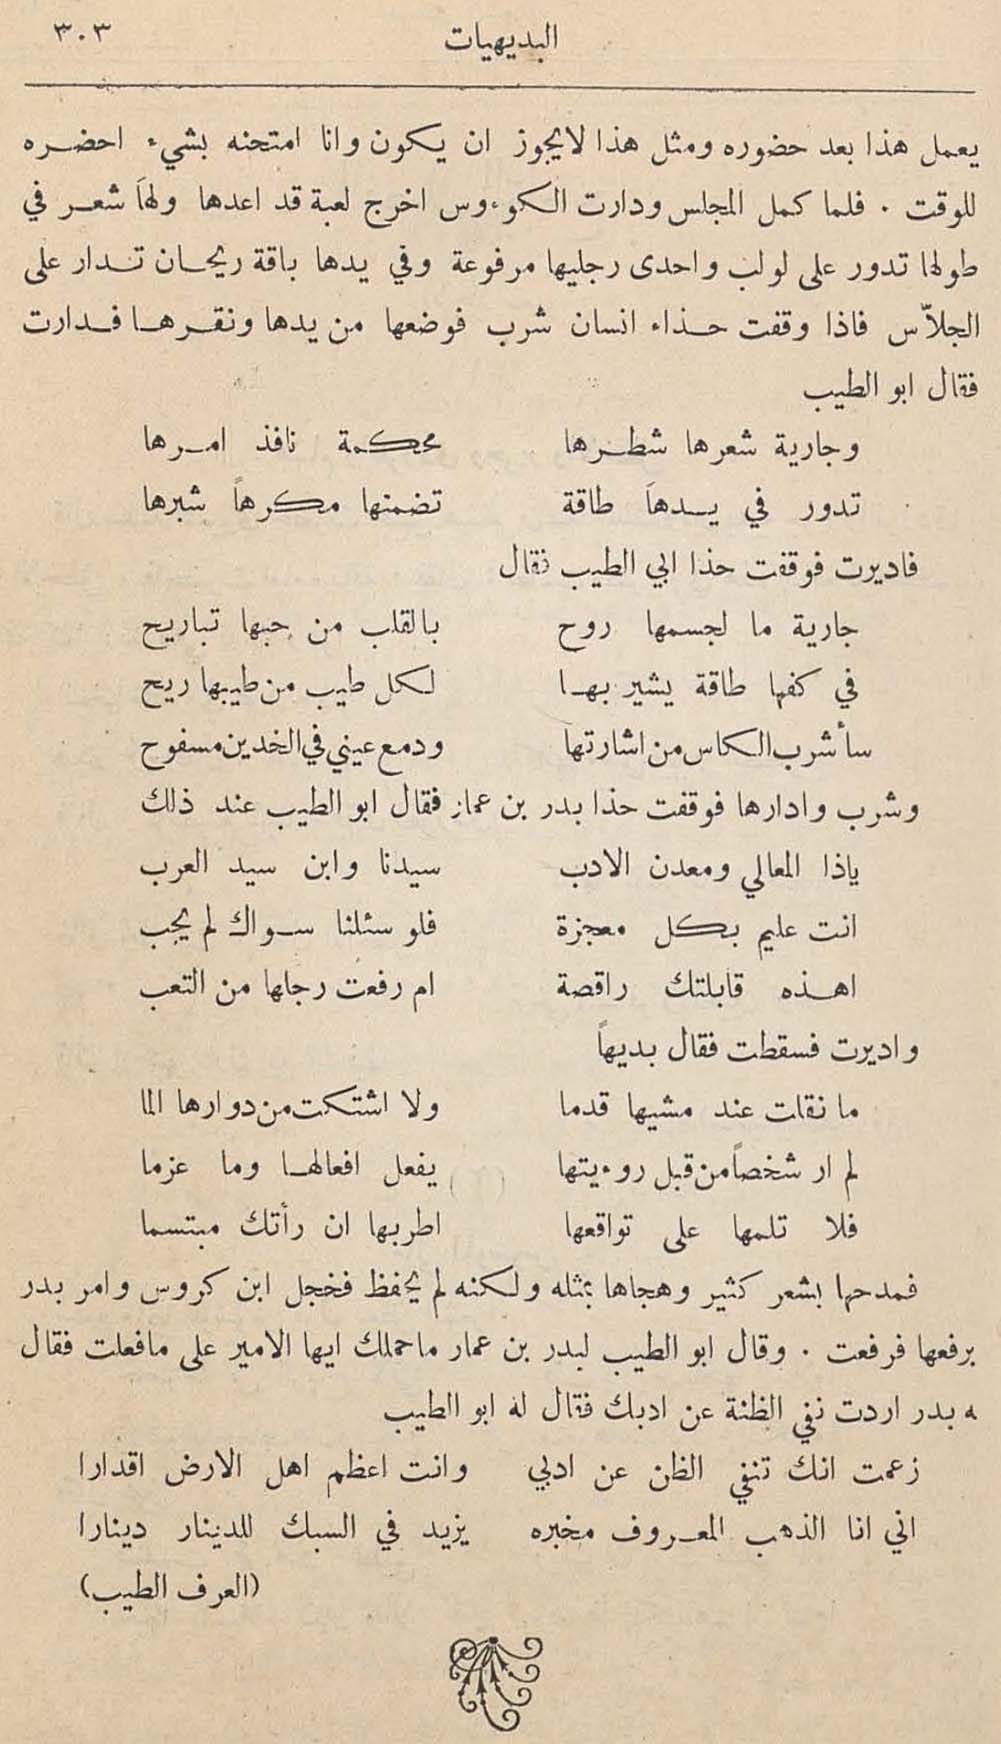 البديهيات ٣٠٣
يعمل هذا بعد حضوره ومثل هذا لايجوز ان يكون وانا امتحنه بشيء احضره
للوقت . فلما كمل المجلس ودارت الكوءوس اخرج لعبة قد اعدها ولها شعر في
طولها تدور على لولب واحدى رجليها مرفوعة وفي يدها باقة ريحان تدار على
الجلاّس فاذا وقفت حذاء انسان شرب فوضعها من يدها ونقرها فدارت
فقال ابو الطيب
وجارية شعرها شطرها محكمة نافذ امرها
تدور في يدها طاقة تضمنها مكرهاً شبرها
فاديرت فوقفت حذا ابي الطيب فقال
جارية ما لجسمها روح بالقلب من حبها تباريح
في كفها طاقة يشير بها لكل طيب من طيبها ريح
سأشرب الكاس من اشارتها ودمع عيني في الخدين مسفوح
وشرب وادارها فوقفت حذا بدر بن عمار فقال ابو الطيب عند ذلك
ياذا المعالي ومعدن الادب سيدنا وابن سيد العرب
انت عليم بكل معجزة فلو سئلنا سواك لم يجب
اهذه قابلتك راقصة ام رفعت رجلها من التعب
واديرت فسقطت فقال بديهاً
ما نقلت عند مشيها قدما ولا اشتكت من دوارها الما
لم ار شخصاً من قبل روءيتها يفعل افعالها وما عزما
فلا تلمها على تواقعها اطربها ان رأتك مبتسما
فمدحها بشعر كثير وهجاها بمثله ولكنه لم يحفظ فخجل ابن كروس وامر بدر
برفعها فرفعت . وقال ابو الطيب لبدر بن عمار ماحملك ايها الامير على مافعلت فقال
ه بدر اردت نفي الظنة عن ادبك فقال له ابو الطيب
زعمت انك تنفي الظن عن ادبي وانت اعظم اهل الارض اقدارا
اني انا الذهب المعروف مخبره يزيد في السبك للدينار دينارا
(العرف الطيب)